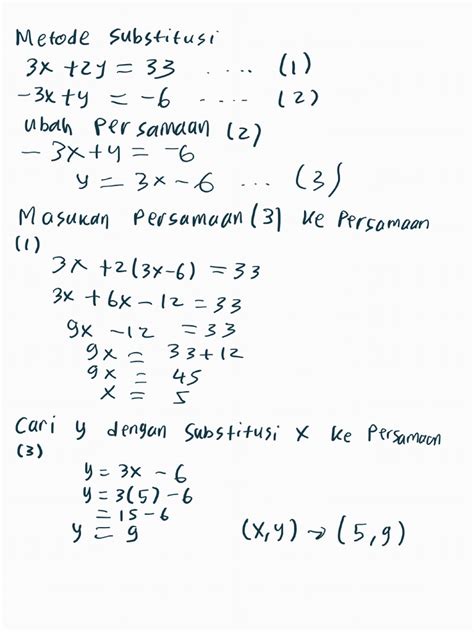 Metode substitusi
3x + 2y = 33 .... (1)
-3x + y = -6 .... (2)
Ubah Persamaan (2)
- 3x + y = -6
y = 3x - 6 ... (3)
Masukan Persamaan (3) ke Persamaan
(1)
3x + 2(3x-6) = 33
3x + 6x - 12 = 33
9x - 12 = 33
9x = 33+12
9x = 45
x = 5
Cari y dengan Substitusi x ke Persamaan
(3)
y = 3x - 6
y = 3(5) - 6
= 15 - 6
y = 9 (x,y) → (5,9)